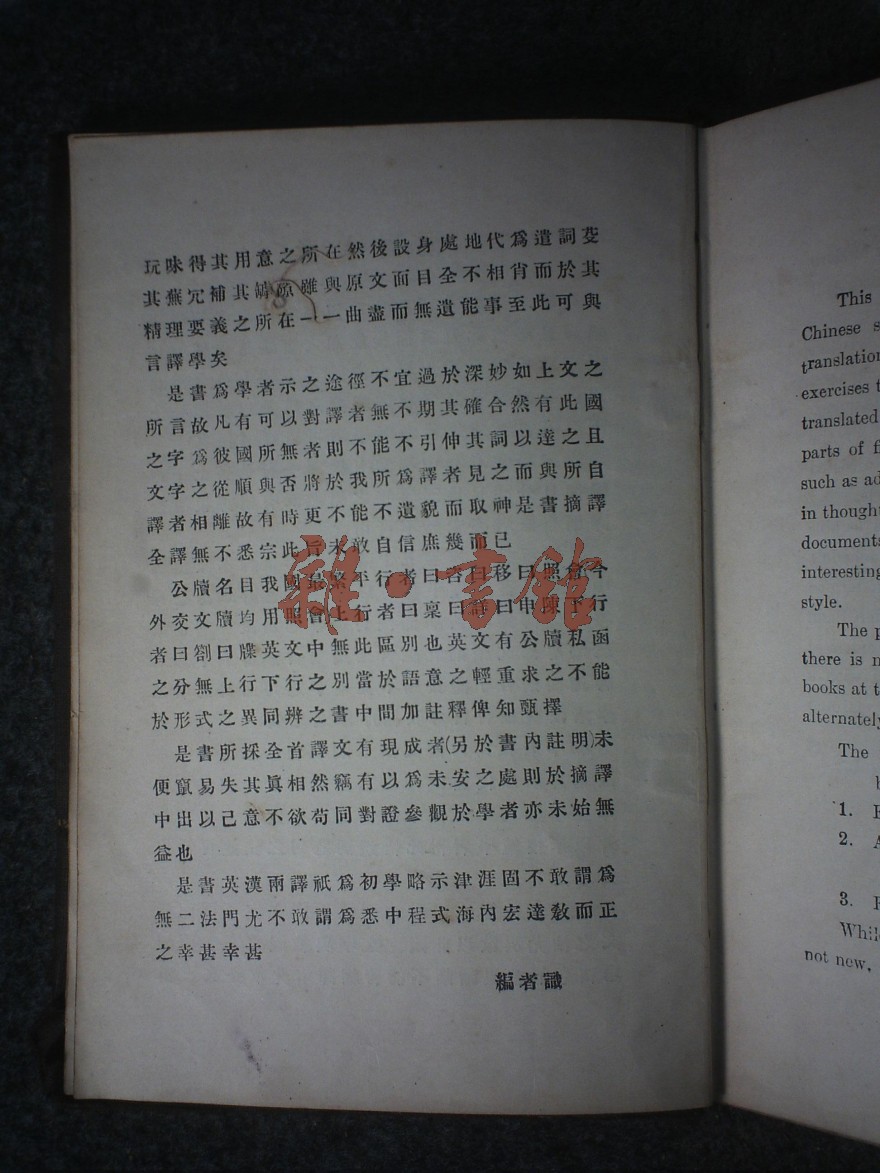 玩味得其用意之所在然後設身處地代為遣詞芟
其蕪冗補其罅原雖與原文面目全不相肖而於其
精理要義之所在一一曲盡而無遺能事至此可與
言譯學矣
是書為學者示之途徑不宜過於深妙如上文之
所言故凡有可以對譯者無不期其確合然有此國
之字為彼國所無者則不能不引伸其詞以達之且
文字之從順與否將於我所為譯者見之而與所自
譯者相離故有時更不能不遺貌而取神是書摘譯
全譯無不悉宗此旨未敢自信庶幾而已
公牘名目我國最繁平行者曰咨曰移曰照會今
外交文牘均用照會上行者曰稟曰詳曰申陳下行
者曰劄曰牒英文中無此區別也英文有公牘私函
之分無上行下行之別當於語意之輕重求之不能
於形式之異同辨之書中間加註釋俾知甄擇
是書所採全首譯文有現成者(另於書內註明)未
便竄易失其眞相然竊有以為未安之處則於摘譯
中出以己意不欲苟同對證參觀於學者亦未始無
益也
是書英漢兩譯祇為初學略示津涯固不敢謂為
無二法門尤不敢謂為悉中程式海內宏達敎而正
之幸甚幸甚
編者識
雜·書館
This
Chinese s
translation
exercises t
translated
parts of f
such as ad
in thought
documents
interesting
style.
The p
there is n
books at t
alternately
The
b
1. E
2. A
3. F
While
not new,